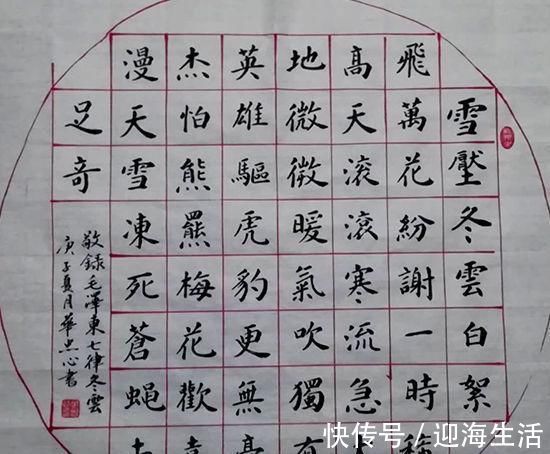 雪壓冬雲白絮
飛萬花紛謝一時
高天滾滾寒流急
地微微暖氣吹獨有
英雄驅虎豹更無
杰怕熊羆梅花歡
漫天雪凍死蒼蠅
足奇
敬錄毛澤東七律冬雲
庚子夏月華忠心書
快传号 / 迎海生活